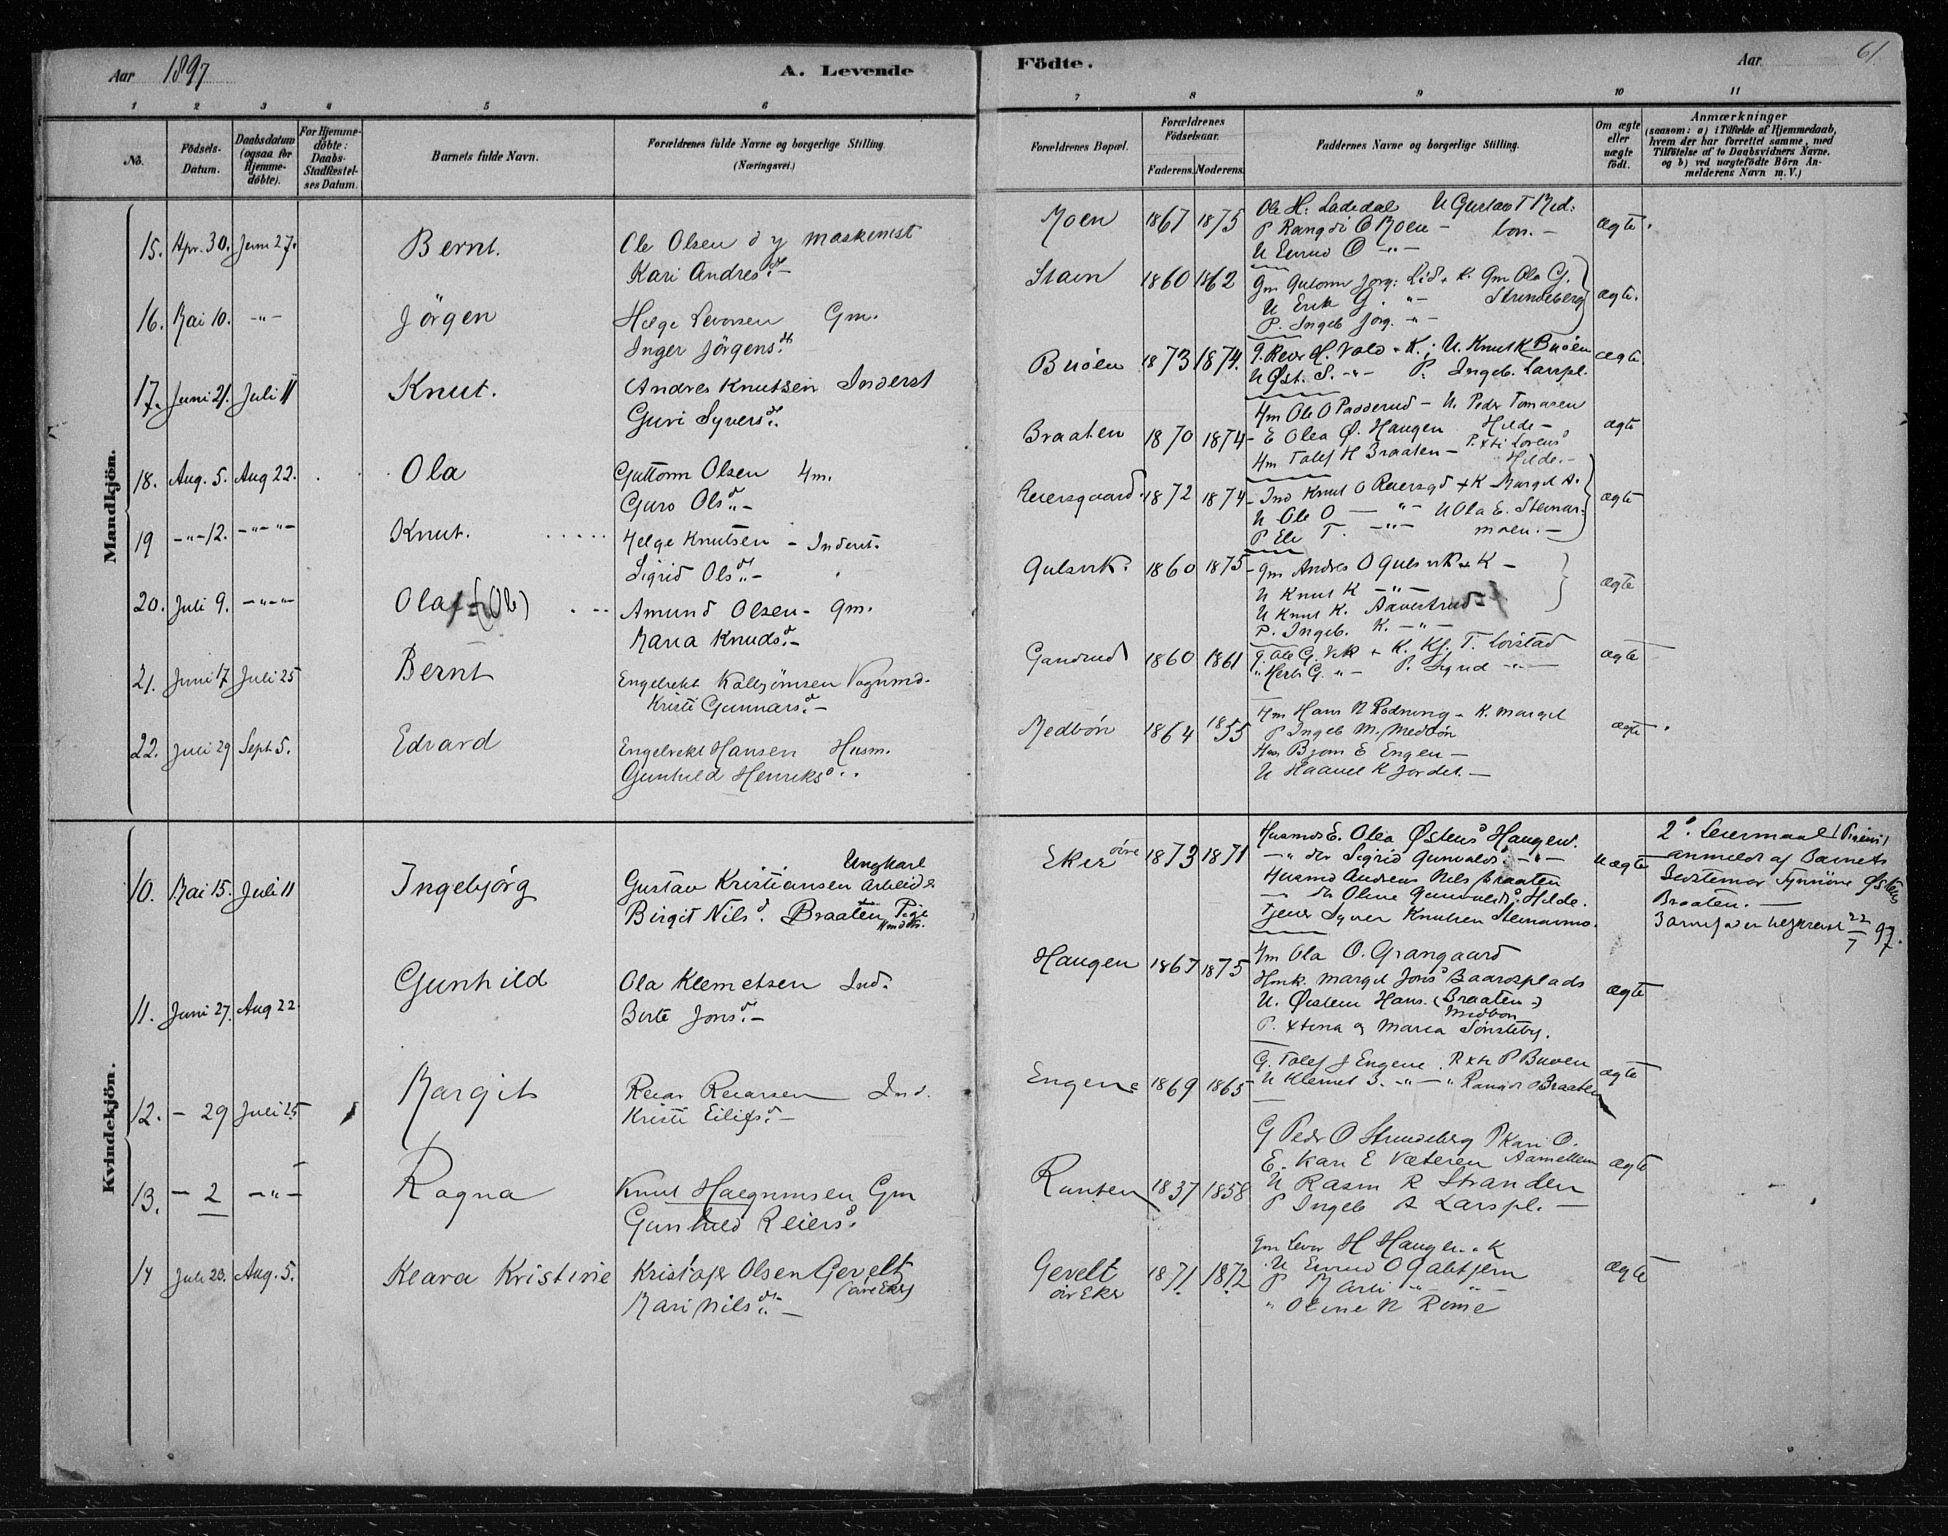 Aar 1897
A. Levende
Födte.
Aar
61
1 2 3 4 5 6 7 8 9 10 11
No.
Födsels-
Datum.
Daabsdatum
(ogsaa for
Hjemme-
döbte).
For Hjemme-
döbte:
Daabs-
Stadfæstel-
ses Datum.
Barnets fulde Navn.
Forældrenes fulde Navne og borgerlige Stilling.
(Næringsvei.)
Forældrenes Bopæl.
Forældrenes
Födselsaar.
Faderens. Moderens.
Faddernes Navne og borgerlige Stilling.
Om ægte
eller
uægte
födt.
Anmærkninger
(saasom: a) i Tilfælde af Hjemmedaab,
hvem der har forrettet samme, med
Tilföielse af to Daabsvidners Navne,
og b) ved uægtefödte Börn An-
melderens Navn m. V.)
Mandkjön.
15. Apr. 30. Juni 27. Bernt. Ole Olsen d y Maskinist
Kari Andresd. -
Moen 1867 1875 Ole H. Ladedal U Gustav T Med:
P Rangdi O Moen - bon. -
U Enrud O -"-
ægte.
16. Mai 10. -"- Jörgen Helge Levorsen Gm.
Inger Jörgensd.
Stavn 1860 1862 Gm Gutorm Jörg: Lid + K. Gm Ola G.
U Erik G. -"- Strundeberg
P. Ingeb Jörg. -"-
ægte.
17. Juni 21. Juli 11 Knut. Andres Knutsen Inderst
Guri Syversd.
Buöen 1873 1874. G. Reier H. Vold + K.; U. Knut K Buöen
U Øst. S. -"- P. Ingeb. Larspl.
ægte
18. Aug. 5. Aug 22. Ola Guttorm Olsen Hm.
Guro Olsd. -
Braaten 1870 1874 Hm Ole O Padderud - U. Peder Tomasen
E Olea Ø. Haugen Hilde -
Hm Tolef H Braaten - P. Xti Lorensd Hilde. -
ægte
19 -"- 12. -"-"- Knut. Helge Knutsen - Inderst.
Sigrid Olsd. -
Reiersgaard. 1872 1874 Ind Knut O Reiersgd + K Margit A.
U Ole O -"- U Ola E. Steinar-
P Eli T. -"- moen. -
ægte
20. Juli 9. -"-"- Olaf = (Ole) Amund Olsen - Gm.
Maria Knudsd. -
Gulsvik. 1860 1875 Gm Andres O Gulsvik + K -
U Knut K -"-
U Knut K. Aavestrud -
P. Ingeb. K. -"-
ægte
21. Juni 17 Juli 25 Bernt Engebrekt Kolbjörnsen Vognmd.
Kristi Gunnarsd. -
Gandrud 1860 1861 G. Ole G. Vik + K. Kf. T. Loistad
" Herb. G. "- P. Sigrid -"-
ægte
22. Juli 29 Sept. 5. Edvard Engebrekt Hansen Husm.
Gunhild Henriksd.
Medbön 1864 1855 Hm Hans N Rodning - K. Margit
P Ingeb M. Medbön
Hm Bjorn E Engen -
U Haavel K Jordet. -
ægte.
Kvindekjön.
10. Mai 15. Juli 11 Ingebjörg Gustav Kristiansen Ungkarl Arbeider
Birgit Nilsd. Braaten Pige
Eker öire 1873 1871 Husmds E. Olea Østensd Haugen.
-" dtr Sigrid Gunvaldsd. -"-
Husmd Andreas Nils Braaten
- dtr Oline Gunvaldsd. Hilde.
Tjener Syver Knutsen Steinarmo.
uægte
2d. Leiermaal (Pigens)
anmeldt af Barnets
Bedstemor Synnöve Østens
Braaten. -
Barnefader 22/7 97.
11. Juni 27. Aug 22 Gunhild Ola Klemetsen Ind.
Berte Jonsd. -
Haugen 1867 1875 Hm Ola O. Grangaard
Hmk. Margit Jonsd Baarosplads
U. Øistein Hans. (Braaten -)
Medbon
P. Xtina og Maria Sønsteby.
ægte
12. - 29 Juli 25 Margit Reiar Reiarsen Ind.
Kristi Eilifsd. -
Engene 1869 1865 G. Tolef J Engene. P Xti P Buøen
U Klemet S. -"- " Rangdi O Braaten
ægte
13. - 2 -"- Ragna Knut Haagensen Gm
Gunhild Reiersd.
Rusten 1837 1858 G Peder O Strundeberg P Kari O.
E. Kari E Væteren Aamellem
U Rasm R Stranden
P Ingeb A Larspl. -
ægte
14 Juli 23. Aug. 5. Keara Kristine Kristofer Olsen Gevelt
(öire Eker)
Mari Nilsd. -
Gevelt 1871. 1872
öir Eker
Gm Levor H Haugen. + K
U Enrud O Galtjern
P Marli -"-
" Oline N Rime
ægte